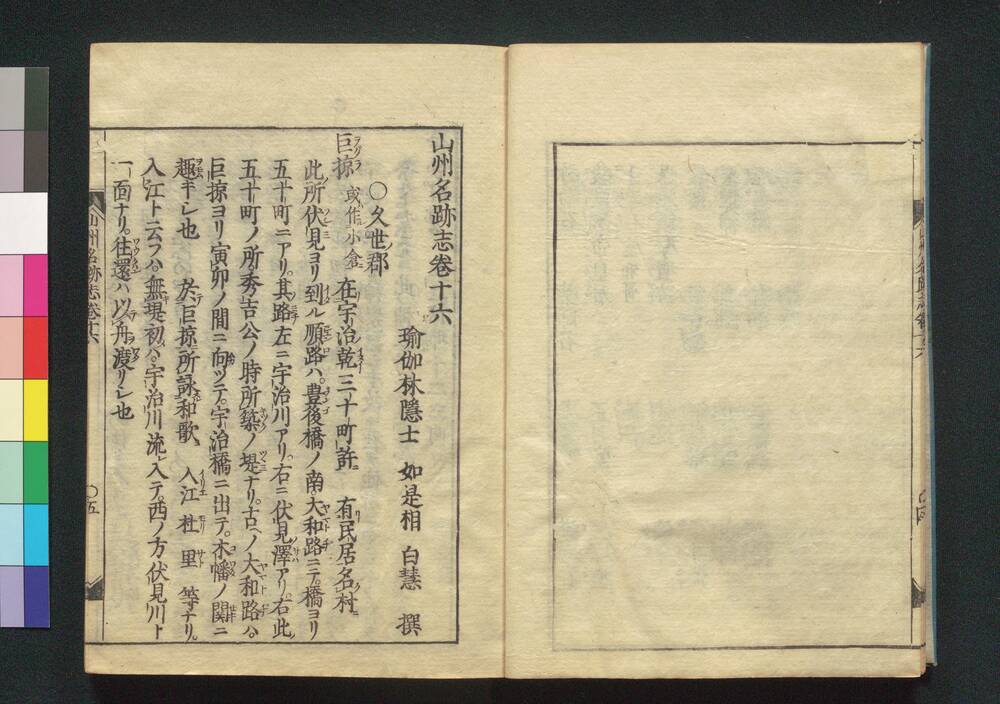 山州名跡志卷十六
瑜伽林隱士　如是相　白慧　撰
〇久世郡
巨掠 或作小倉 在宇治乾三十町許　有民居名村
此所伏見ヨリ到ル順路ハ豊後橋ノ南大和路ニテ橋ヨリ
五十町ニアリ其路左ニ宇治川アリ右ニ伏見澤アリ右此
五十町ノ所秀吉公ノ時所築ノ堤ナリ古ヘノ大和路ハ
巨掠ヨリ寅卯ノ間ニ向ツテ宇治橋ニ出テ木幡ノ関ニ
趣キシ也　於巨掠所詠和歌　入江　杜　里　等ナリ
入江ト云フハ無堤初ハ宇治川流入テ西ノ方伏見川ト
一面ナリ往還ハ以舟渡リシ也
山州名跡志卷十六
〇五